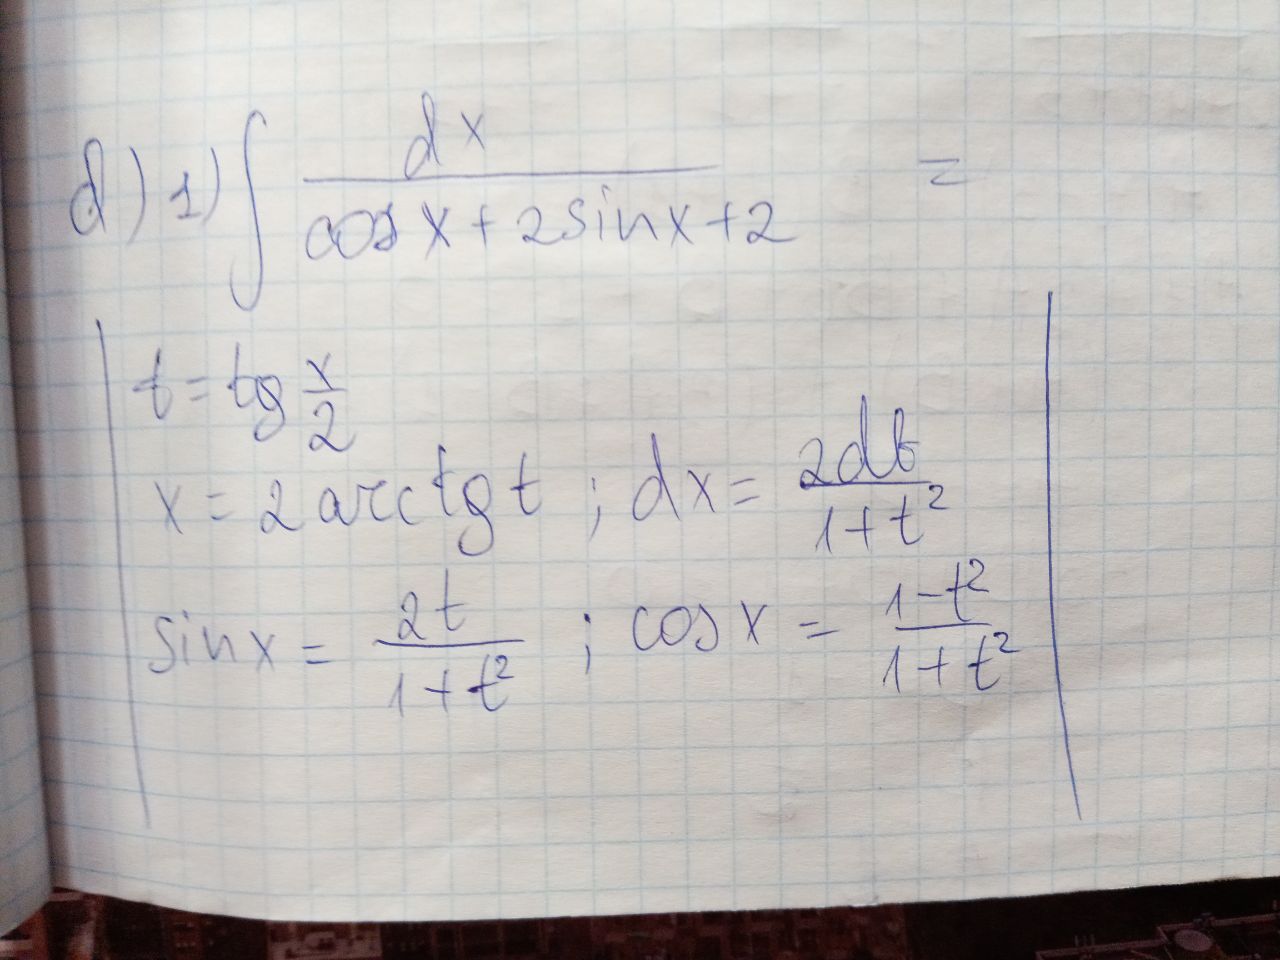 d) 1) ∫ dx / (cos x + 2 sin x + 2) =
t = tg x/2
x = 2 arctg t ; dx = 2dt / (1 + t²)
sin x = 2t / (1 + t²) ; cos x = (1 - t²) / (1 + t²)